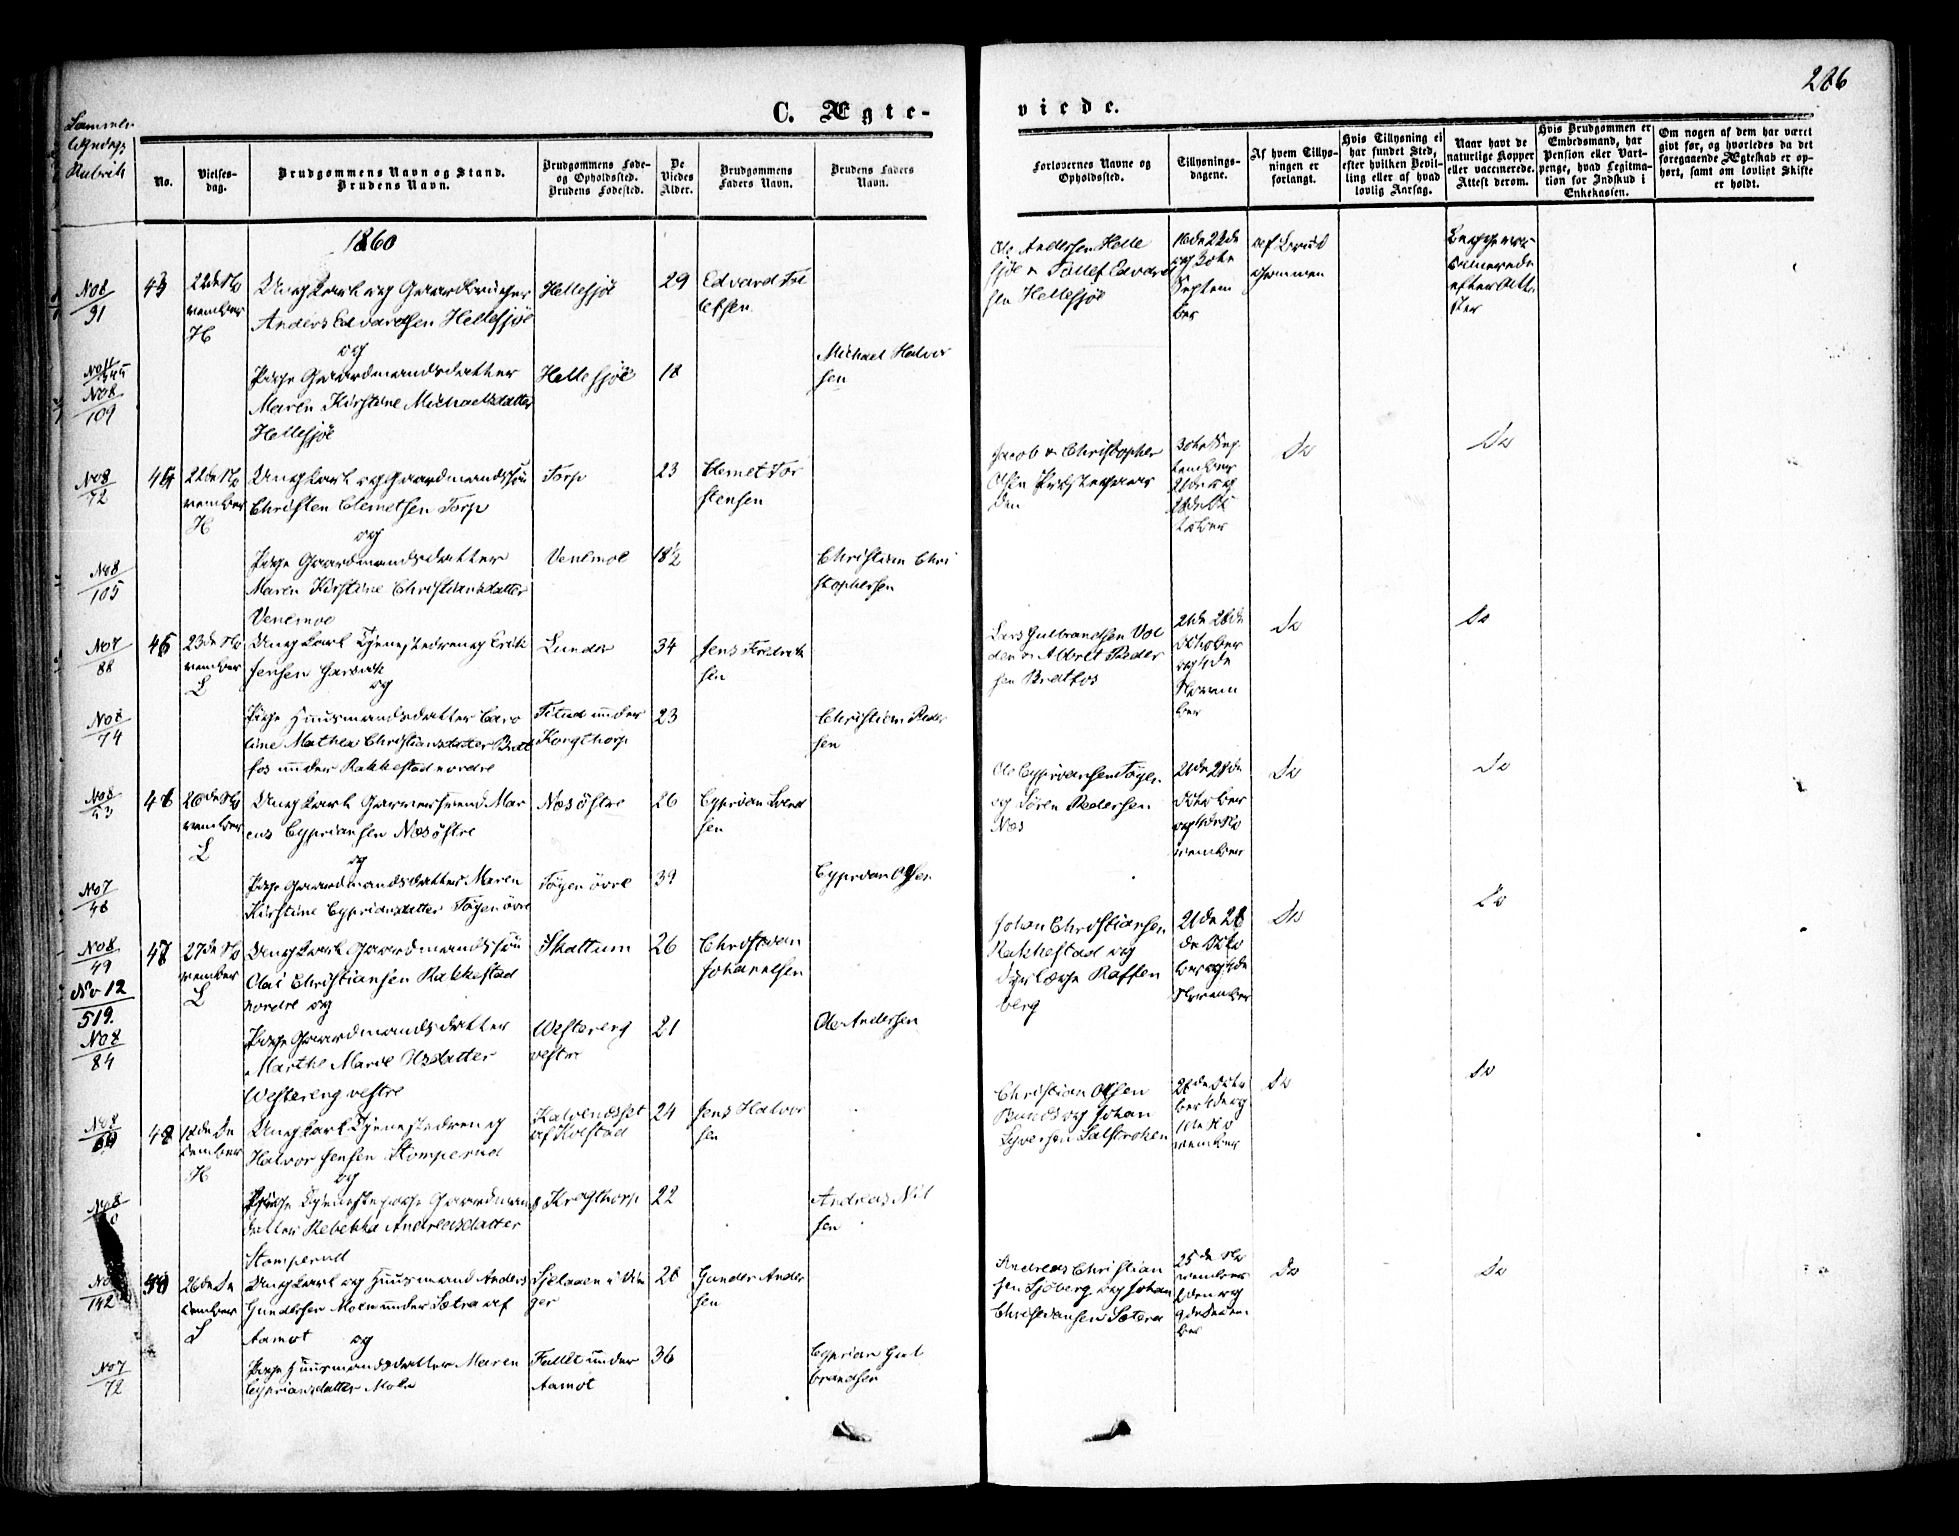 226
C. Ægte-
viede.
Sammen-
lignings
Rubrik
No.
Vielses-
dag.
Brudgommens Navn og Stand.
Brudens Navn.
Brudgommens Føde-
og Opholdssted.
Brudens Fødested.
De
Viedes
Alder.
Brudgommens
Faders Navn.
Brudens Faders
Navn.
Forlovernes Navne og
Opholdssted.
Tillysnings-
dagene.
Af hvem Tillys-
ningen er
forlangt.
Hvis Tillysning ei
har fundet Sted,
efter hvilken Bevil-
ling eller af hvad
lovlig Aarsag.
Naar havt de
naturlige Kopper
eller vaccinerede.
Attest derom.
Hvis Brudgommen er
Embedsmand, har
Pension eller Vart-
penge, hvad Legitima-
tion for Indskud i
Enkekassen.
Om nogen af dem har været
givt før, og hvorledes da det
foregaaende Ægteskab er op-
hørt, samt om lovligt Skifte
er holdt.
1860
No 8
91
43
22de No
vember
H
Ungkarl og Gaardbruger
Anders Edvardsen Hellesjøe
og
Hellesjøe
29
Edvard Tol
lefsen
Ole Andersen Helle
sjøe & Tollef Edvard
sen Hellesjøe
16de 22de
og 30te
Septem
ber
af Brud
gommen
Begge vac
cinerede
efter Atte
ster
No 8
109
Pige Gaardmandsdatter
Maren Kirstine Michaelsdatter
Hellesjøe
Hellesjøe
18
Michael Halvor
sen
No 8
72
44
22de No
vember
H
Ungkarl og Gaardmandssøn
Christen Clemetsen Torp
og
Torp
23
Clemet Tor
stensen
Jacob & Christopher
Olsen Præstegaar
den
30te Sep
tember
21de og
28de Oc
tober
Do
Do
No 8
105
Pige Gaardmandsdatter
Maren Kirstine Christiansdatter
Venemoe
Venemoe
18½
Christian Chri
stophersen
No 7
88
45
23de No
vember
L
Ungkarl Tjenestedreng Erik
Jensen
og
Lunder
34
Jens Fredrik
sen
Lars Gulbrandsen Vol
den & Albret Peder
sen Bratfos
21de 28de
October
og 4de
Novem
ber
Do
Do
No 8
74
Pige Huusmandsdatter Caro
line Mathea Christiansdatter Brat
fos under Rakkestad nordre
under
Krogthorp
23
Christian Peder
sen
No 8
53
46
26de No
vember
L
Ungkarl Garversvend Mar
cus Cypriansen Næs østre
og
Næs østre
26
Cyprian Svend
sen
Ole Cypriansen Tøyen
og Søren Pedersen
Næs
21de 28de
October
og 4de No
vember
Do
Do
No 7
48
Pige Gaardmandsdatter Maren
Kirstine Cypriansdatter Tøyen øvre
Tøyen øvre
39
Cyprian Olsen
No 8
49
No 12
519.
47
27de No
vember
L
Ungkarl Gaardmandssøn
Olai Christiansen Rakkestad
nordre og
Skattum
26
Christian
Johanesen
Johan Christiansen
Rakkestad og
Dyrlæge Raffen
berg
21de 28
de Octo
ber og 4de
November
Do
Do
No 8
84
Pige Gaardmandsdatter
Marthe Marie Olsdatter
Westereng vestre
Westereng
vestre
21
Ole Andersen
No 8
48
18de De
cember
H
Ungkarl Tjenestedreng
Halvor Jensen Stomperud
og
af Kolstad
24
Jens Halvor
sen
Christian Olsen
og Johan
28de Octo
ber 4de og
11te No
vember
Do
Do
No 8
Pige Tjenestepige Gaardmans
datter Rebekka Andreasdatter
Stomperud
Krogthorp
22
Andreas Nil
sen
No
142
26de De
cember
L
Ungkarl og Huusmand Anders
Gundersen Moen under Sætra af
Aamot og
i Vin
ger
28
Gunder Ander
sen
Andreas Christian
sen Sjøberg og Johan
Christiansen Sætra
25de No
vember
2den og
9de Decem
ber
Do
Do
No 7
72
Pige Huusmandsdatter Maren
Cypriansdatter Moen
Fallet under
Aamot
36
Cyprian Gul
brandsen